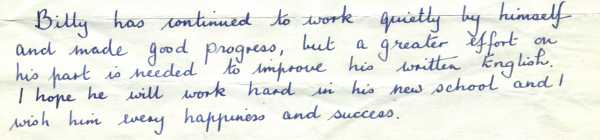 Billy has continued to work quietly by himself
and made good progress, but a greater effort on
his part is needed to improve his written English.
I hope he will work hard in his new school and I
wish him every happiness and success.